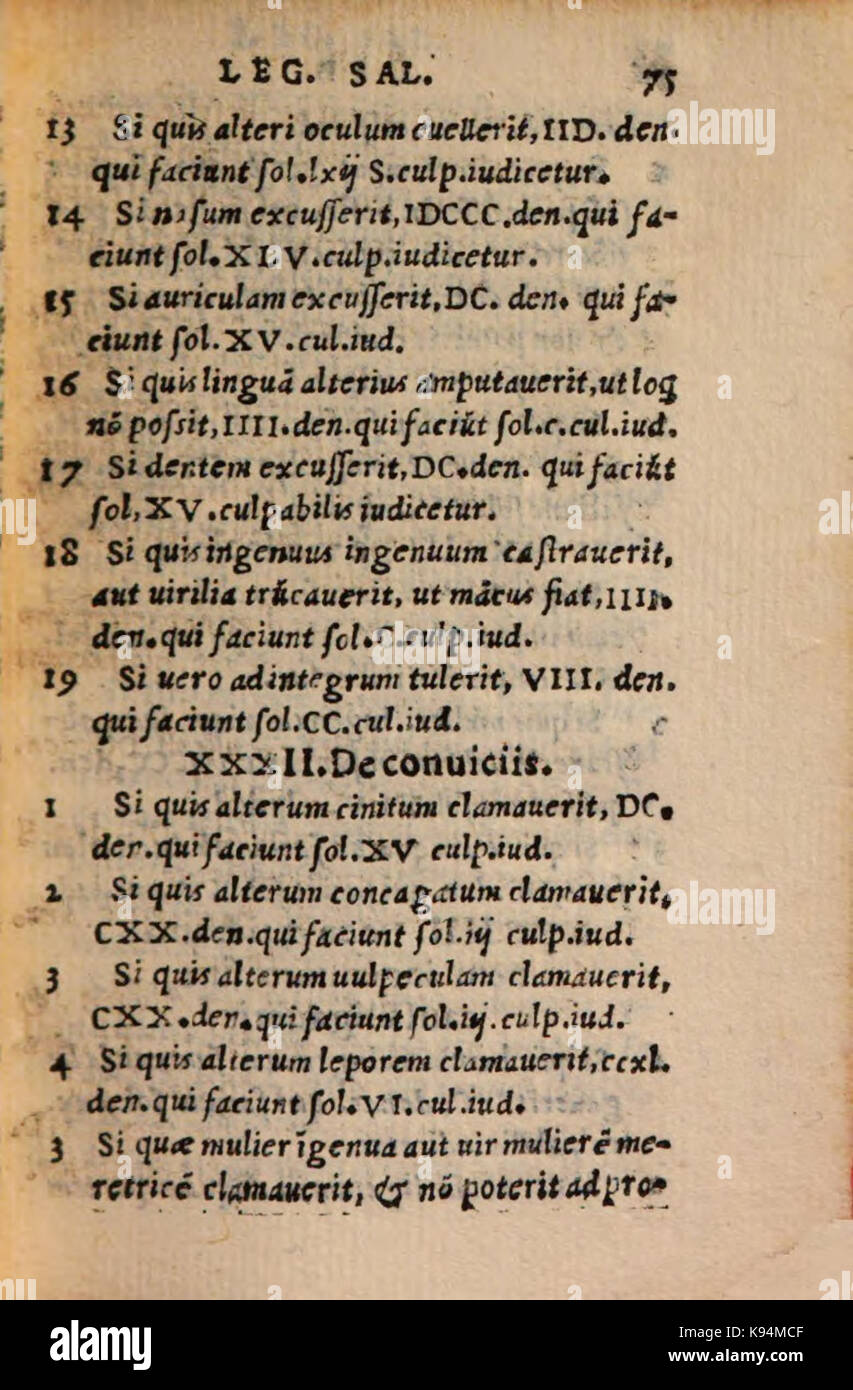 LEG. SAL. 75
13 Si quis alteri oculum euellerit, IID. den.
qui faciunt ſol.lxij S.culp.iudicetur.
14 Si naſum excuſſerit, IDCCC.den.qui fa-
ciunt ſol.XLV.culp.iudicetur.
15 Si auriculam excuſſerit, DC. den. qui fa-
ciunt ſol.XV.cul.iud.
16 Si quis linguā alterius amputauerit, ut loq
nō poſsit, IIII.den.qui faciūt ſol.c.cul.iud.
17 Si dentem excuſſerit, DC.den. qui faciūt
ſol, XV.culpabilis iudicetur.
18 Si quis ingenuus ingenuum caſtrauerit,
aut uirilia trūcauerit, ut mācus fiat, IIII.
den.qui faciunt ſol.C.culp.iud.
19 Si uero ad integrum tulerit, VIII. den.
qui faciunt ſol.CC.cul.iud.
XXXII.De conuiciis.
1 Si quis alterum cinitum clamauerit, DC.
den.qui faciunt ſol.XV culp.iud.
2 Si quis alterum concagatum clamauerit,
CXX.den.qui faciunt ſol.iij culp.iud.
3 Si quis alterum uulpeculam clamauerit,
CXX.den.qui faciunt ſol.iij.culp.iud.
4 Si quis alterum leporem clamauerit, ccxl.
den.qui faciunt ſol.VI.cul.iud.
3 Si quæ mulier īgenua aut uir mulierē me-
retricē clamauerit, & nō poterit ad pro-
alamy
Image ID: K94MCF
www.alamy.com